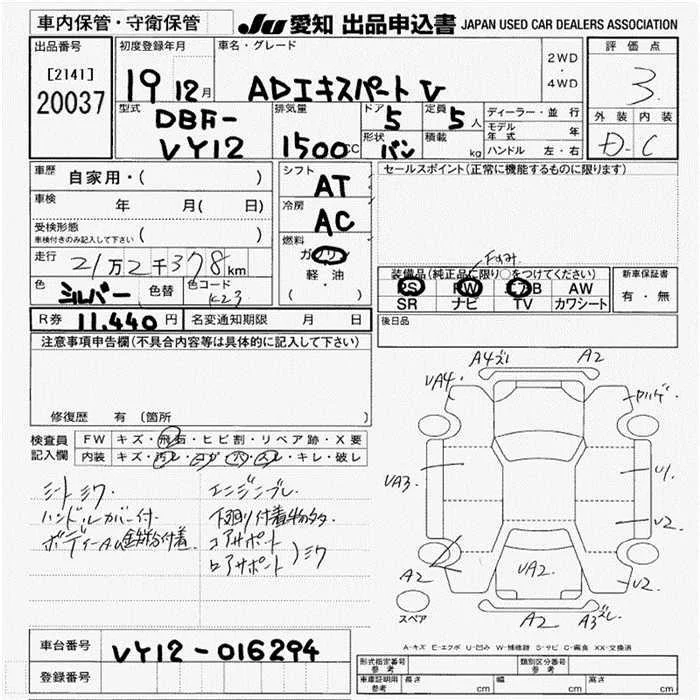 車内保管・守衛保管
JU 愛知 出品申込書 JAPAN USED CAR DEALERS ASSOCIATION
出品番号
[2141]
20037
初度登録年月
19 12月
車名・グレード
ADエキスパート V
2WD
・
4WD
評価点
3
外装 内装
D - C
型式
DBF-
VY12
排気量
1500CC
ドア
5
定員
5人
形状
バン
積載
kg
ディーラー・並行
モデル年式 年
ハンドル 左・右
車歴 自家用・( )
車検 年 月( 日)
受検形態
車検付きのみ記入して下さい ( )
走行 21万2千378km
色 シルバー 色替 色コード K23
シフト
AT
冷房
AC
燃料
ガソリン
軽・油
( ・ )
セールスポイント(正常に機能するものに限ります)
装備品(純正品に限り○をつけてください)
PS PW エアB AW
SR ナビ TV カワシート
新車保証書
有・無
R券 11,440円 名変通知期限 月 日
後日品
注意事項申告欄(不具合内容等は具体的に記入して下さい)
修復歴 有 (箇所 )
検査員記入欄
FW キズ・飛石・ヒビ割・リペア跡・X要
内装 キズ・汚レ・コゲ・穴・スレ・キレ・破レ
シートシワ.
ハンドルカバー付.
エンジンブレ.
下廻り付着物多.
コアサポート
ロアサポート)ミク
A4ズレ A2
UA4.
UA3
U1
U2
U2
UA2.
A2
スペア
A2 A3ズレ
A-キズ E-エクボ U-凹み W-補修跡 S-サビ C-腐食 XX-交換済
車台番号 VY12-016294
登録番号
形式指定番号 参考
類別区分番号 参考
車庫証明用 参考 長さ cm 幅 cm 高さ cm